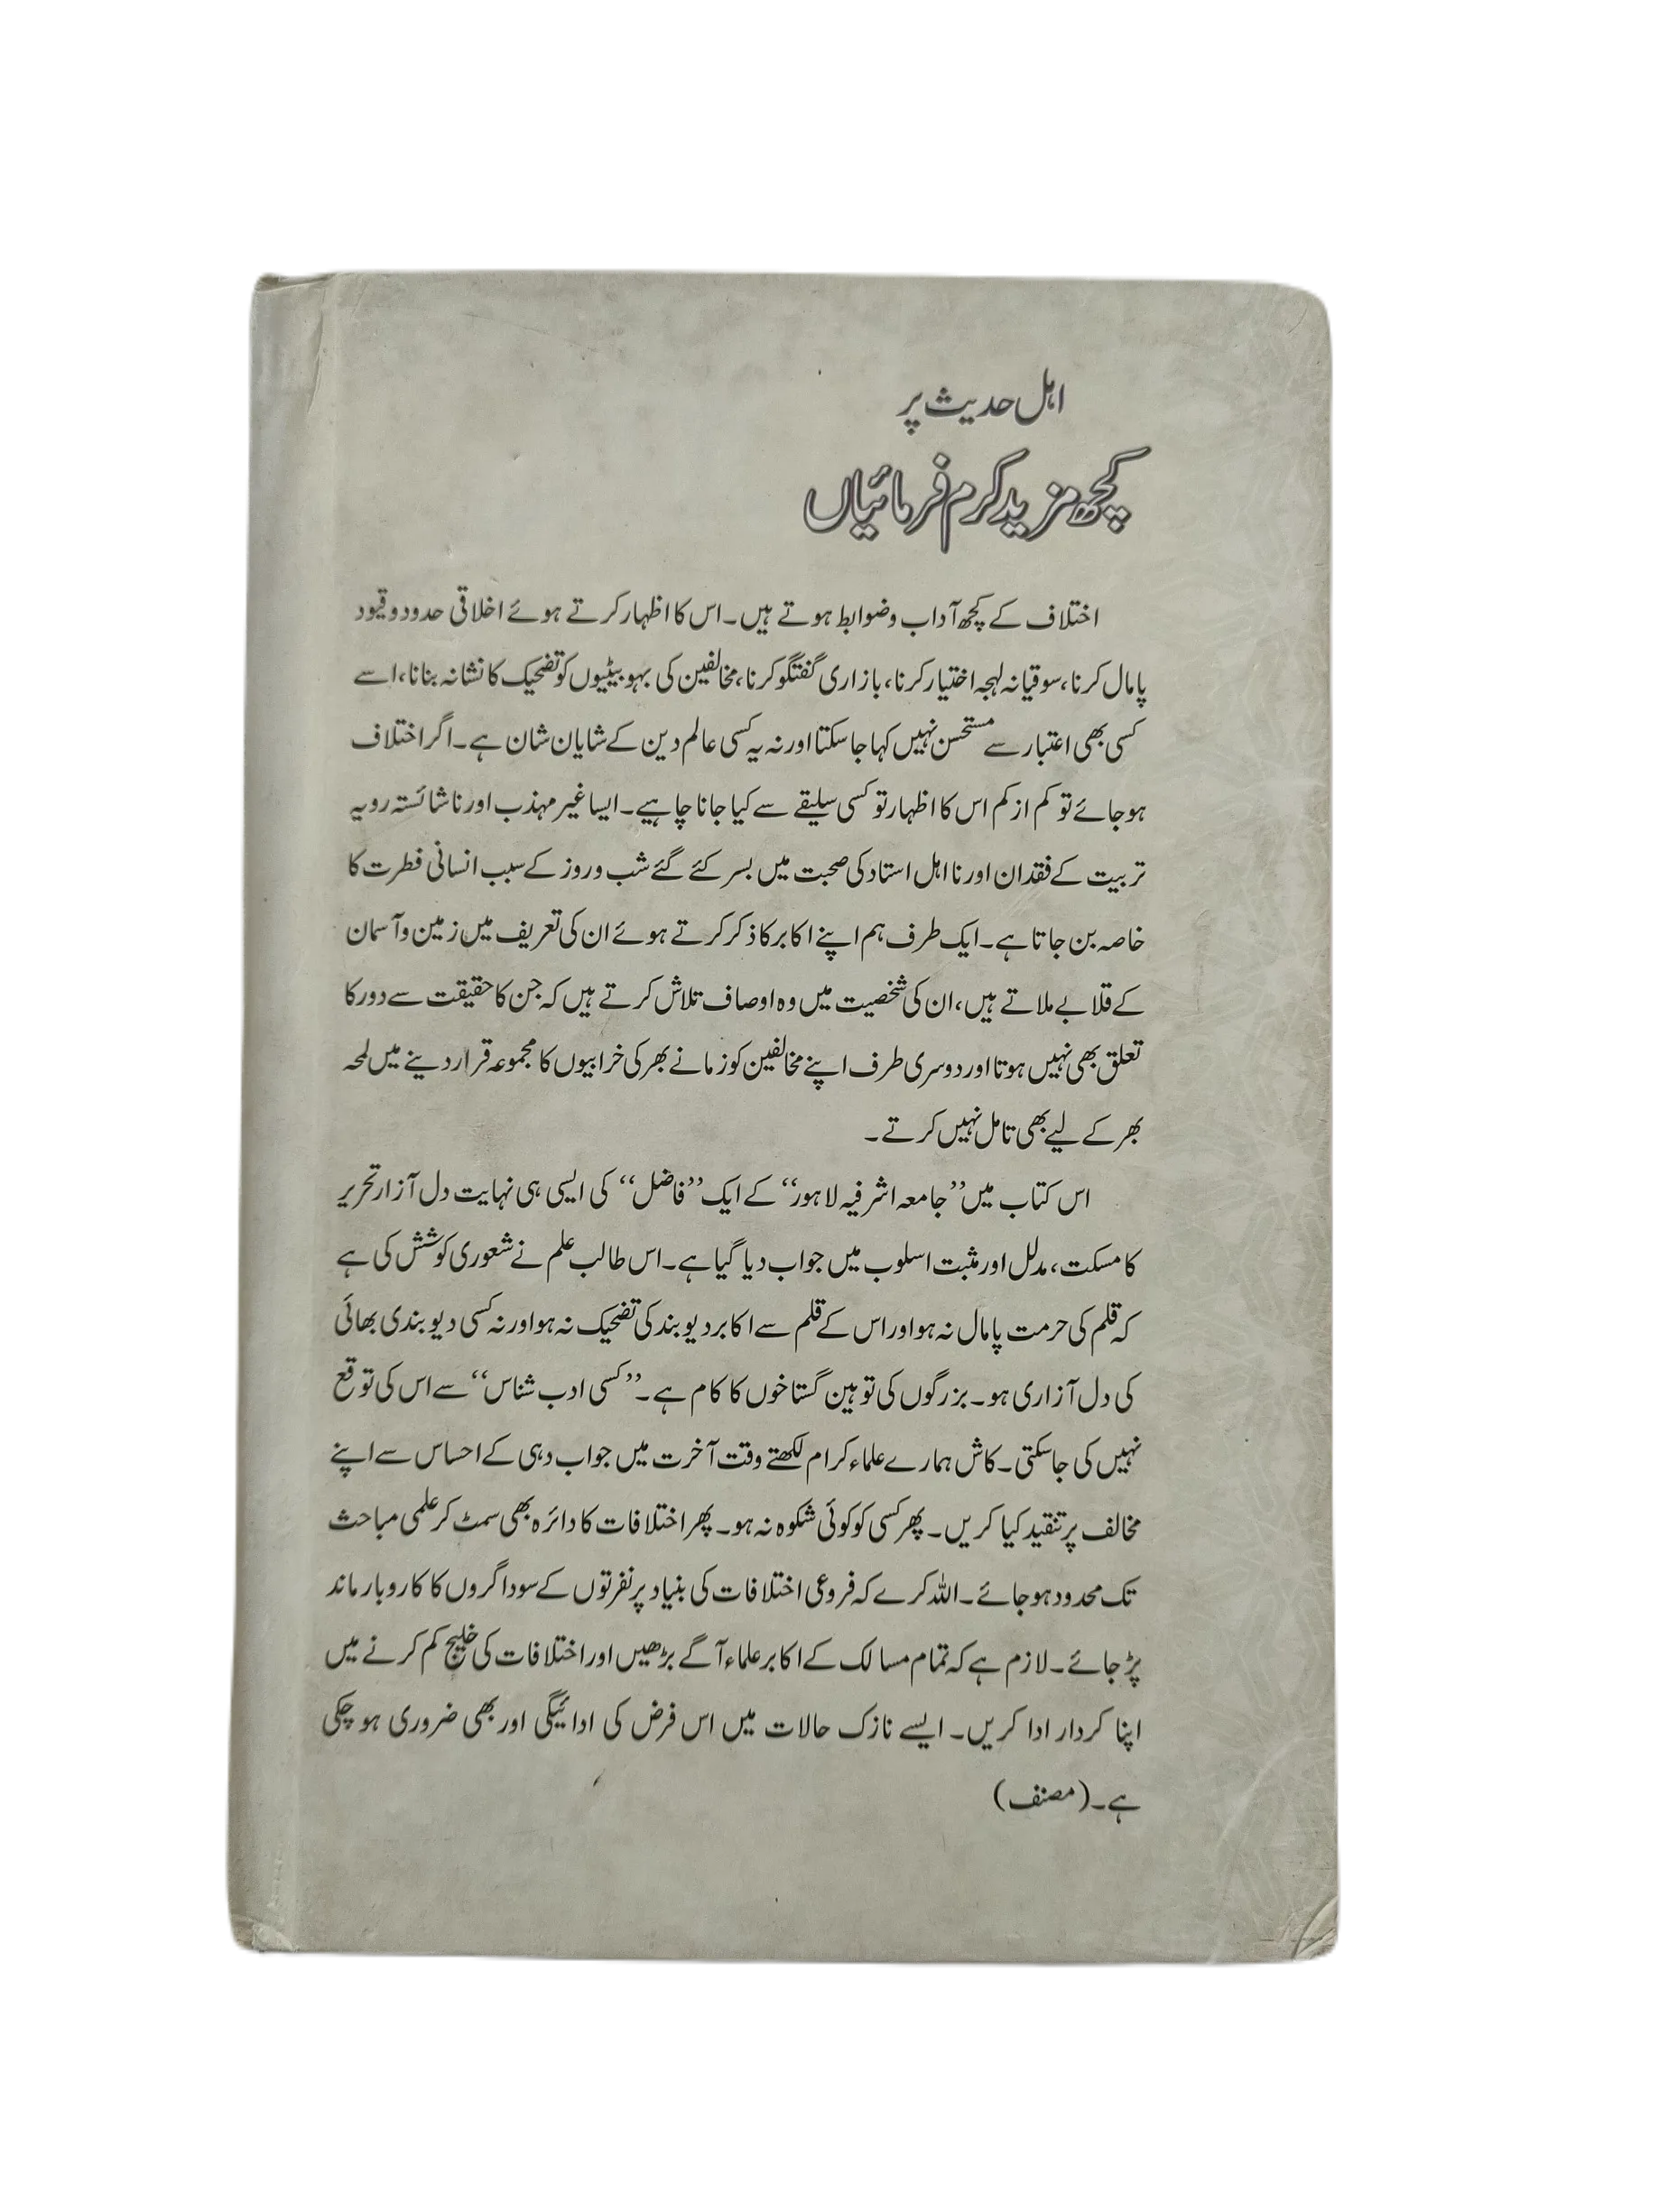 اہل حدیث پر
کچھ مزید کرم فرمائیاں
اختلاف کے کچھ آداب و ضوابط ہوتے ہیں۔ اس کا اظہار کرتے ہوئے اخلاقی حدود و قیود
پامال کرنا، سوقیانہ لہجہ اختیار کرنا، بازاری گفتگو کرنا، مخالفین کی بہو بیٹیوں کو تضحیک کا نشانہ بنانا، اسے
کسی بھی اعتبار سے مستحسن نہیں کہا جا سکتا اور نہ یہ کسی عالم دین کے شایان شان ہے۔ اگر اختلاف
ہو جائے تو کم از کم اس کا اظہار تو کسی سلیقے سے کیا جانا چاہیے۔ ایسا غیر مہذب اور ناشائستہ رویہ
تربیت کے فقدان اور نا اہل استاد کی صحبت میں بسر کئے گئے شب و روز کے سبب انسانی فطرت کا
خاصہ بن جاتا ہے۔ ایک طرف ہم اپنے اکابر کا ذکر کرتے ہوئے ان کی تعریف میں زمین و آسمان
کے قلابے ملاتے ہیں، ان کی شخصیت میں وہ اوصاف تلاش کرتے ہیں کہ جن کا حقیقت سے دور کا
تعلق بھی نہیں ہوتا اور دوسری طرف اپنے مخالفین کو زمانے بھر کی خرابیوں کا مجموعہ قرار دینے میں لمحہ
بھر کے لیے بھی تامل نہیں کرتے۔
اس کتاب میں ’’جامعہ اشرفیہ لاہور‘‘ کے ایک ’’فاضل‘‘ کی ایسی ہی نہایت دل آزار تحریر
کا مسکت، مدلل اور مثبت اسلوب میں جواب دیا گیا ہے۔ اس طالب علم نے شعوری کوشش کی ہے
کہ قلم کی حرمت پامال نہ ہو اور اس کے قلم سے اکابر دیوبند کی تضحیک نہ ہو اور نہ کسی دیوبندی بھائی
کی دل آزاری ہو۔ بزرگوں کی توہین گستاخوں کا کام ہے۔ ’’کسی ادب شناس‘‘ سے اس کی توقع
نہیں کی جا سکتی۔ کاش ہمارے علماء کرام لکھتے وقت آخرت میں جواب دہی کے احساس سے اپنے
مخالف پر تنقید کیا کریں۔ پھر کسی کو کوئی شکوہ نہ ہو۔ پھر اختلافات کا دائرہ بھی سمٹ کر علمی مباحث
تک محدود ہو جائے۔ اللہ کرے کہ فروعی اختلافات کی بنیاد پر نفرتوں کے سوداگروں کا کاروبار ماند
پڑ جائے۔ لازم ہے کہ تمام مسالک کے اکابر علماء آگے بڑھیں اور اختلافات کی خلیج کم کرنے میں
اپنا کردار ادا کریں۔ ایسے نازک حالات میں اس فرض کی ادائیگی اور بھی ضروری ہو چکی
ہے۔ (مصنف)